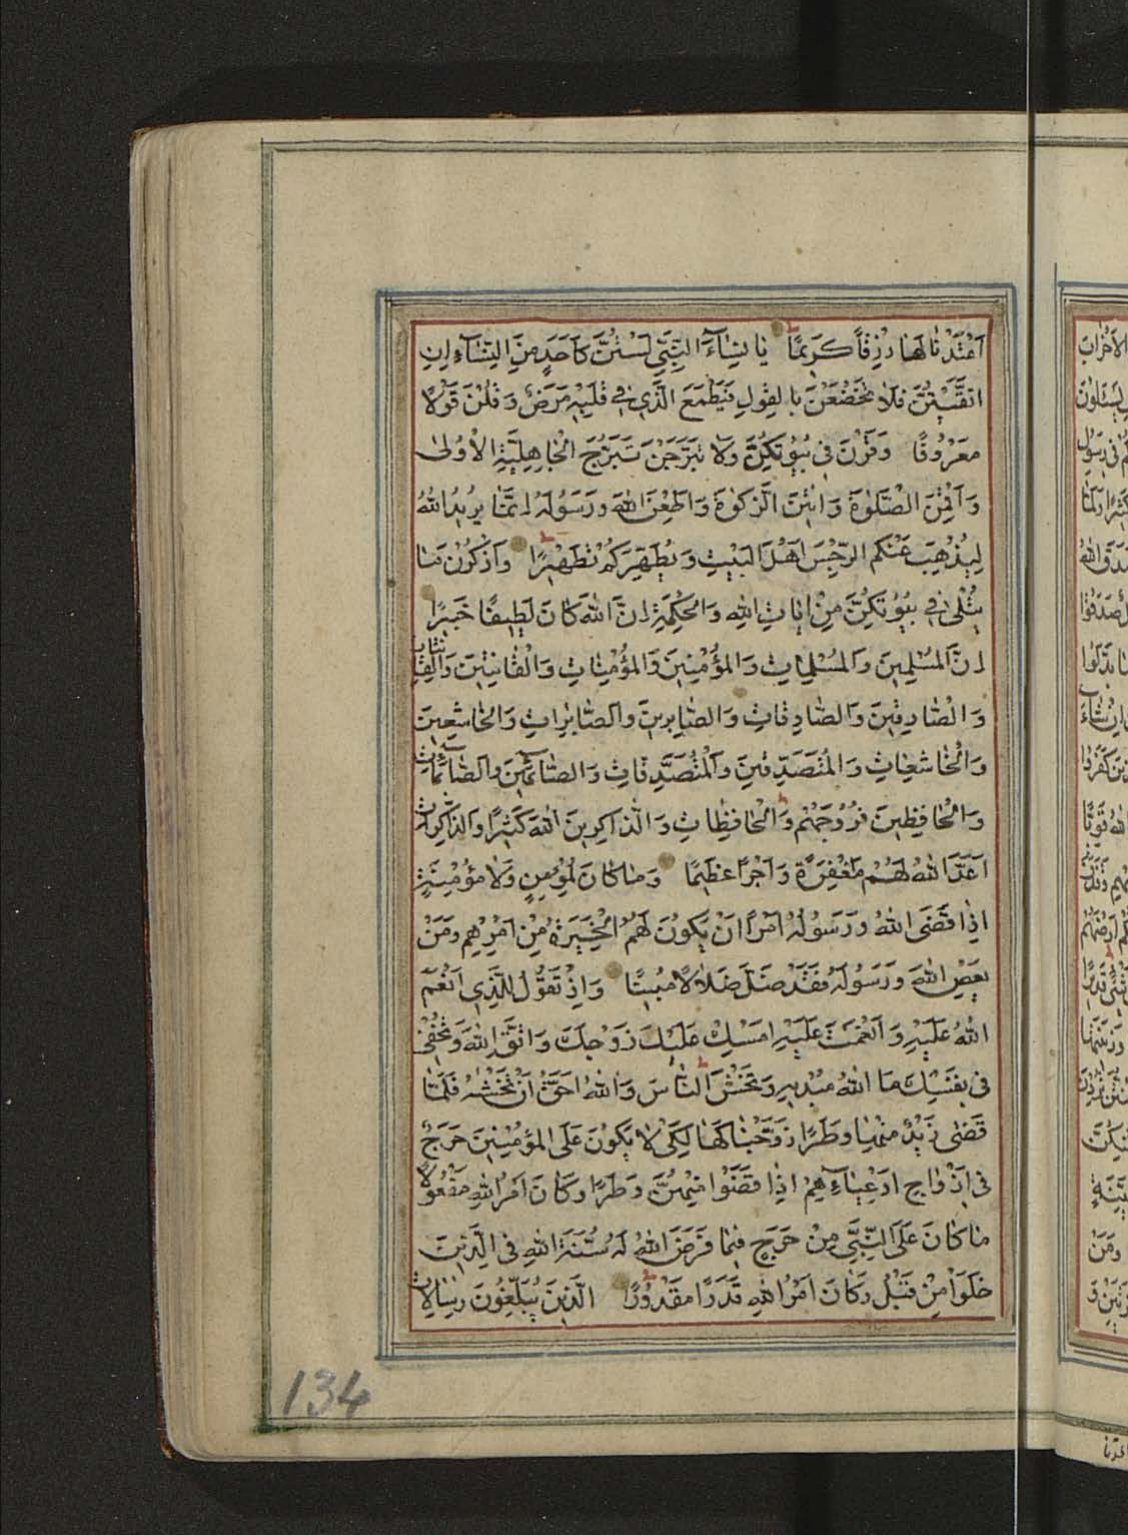 اَعْتَدْنَا لَهَا رِزْقًا كَرِيمًا يَا نِسَاءَ النَّبِيِّ لَسْتُنَّ كَاَحَدٍ مِنَ النِّسَاءِ اِنِ
اتَّقَيْتُنَّ فَلَا تَخْضَعْنَ بِالْقَوْلِ فَيَطْمَعَ الَّذِي فِي قَلْبِهِ مَرَضٌ وَقُلْنَ قَوْلًا
مَعْرُوفًا وَقَرْنَ فِي بُيُوتِكُنَّ وَلَا تَبَرَّجْنَ تَبَرُّجَ الْجَاهِلِيَّةِ الْاُولَى
وَاَقِمْنَ الصَّلٰوةَ وَاٰتِينَ الزَّكٰوةَ وَاَطِعْنَ اللهَ وَرَسُولَهُ اِنَّمَا يُرِيدُ اللهُ
لِيُذْهِبَ عَنْكُمُ الرِّجْسَ اَهْلَ الْبَيْتِ وَيُطَهِّرَكُمْ تَطْهِيرًا وَاذْكُرْنَ مَا
يُتْلَى فِي بُيُوتِكُنَّ مِنْ اٰيَاتِ اللهِ وَالْحِكْمَةِ اِنَّ اللهَ كَانَ لَطِيفًا خَبِيرًا
اِنَّ الْمُسْلِمِينَ وَالْمُسْلِمَاتِ وَالْمُؤْمِنِينَ وَالْمُؤْمِنَاتِ وَالْقَانِتِينَ وَالْقَانِتَاتِ
وَالصَّادِقِينَ وَالصَّادِقَاتِ وَالصَّابِرِينَ وَالصَّابِرَاتِ وَالْخَاشِعِينَ
وَالْخَاشِعَاتِ وَالْمُتَصَدِّقِينَ وَالْمُتَصَدِّقَاتِ وَالصَّائِمِينَ وَالصَّائِمَاتِ
وَالْحَافِظِينَ فُرُوجَهُمْ وَالْحَافِظَاتِ وَالذَّاكِرِينَ اللهَ كَثِيرًا وَالذَّاكِرَاتِ
اَعَدَّ اللهُ لَهُمْ مَغْفِرَةً وَاَجْرًا عَظِيمًا وَمَا كَانَ لِمُؤْمِنٍ وَلَا مُؤْمِنَةٍ
اِذَا قَضَى اللهُ وَرَسُولُهُ اَمْرًا اَنْ يَكُونَ لَهُمُ الْخِيَرَةُ مِنْ اَمْرِهِمْ وَمَنْ
يَعْصِ اللهَ وَرَسُولَهُ فَقَدْ ضَلَّ ضَلَالًا مُبِينًا وَاِذْ تَقُولُ لِلَّذِي اَنْعَمَ
اللهُ عَلَيْهِ وَاَنْعَمْتَ عَلَيْهِ اَمْسِكْ عَلَيْكَ زَوْجَكَ وَاتَّقِ اللهَ وَتُخْفِي
فِي نَفْسِكَ مَا اللهُ مُبْدِيهِ وَتَخْشَى النَّاسَ وَاللهُ اَحَقُّ اَنْ تَخْشٰيهُ فَلَمَّا
قَضَى زَيْدٌ مِنْهَا وَطَرًا زَوَّجْنَاكَهَا لِكَيْ لَا يَكُونَ عَلَى الْمُؤْمِنِينَ حَرَجٌ
فِي اَزْوَاجِ اَدْعِيَاءِهِمْ اِذَا قَضَوْا مِنْهُنَّ وَطَرًا وَكَانَ اَمْرُ اللهِ مَفْعُولًا
مَا كَانَ عَلَى النَّبِيِّ مِنْ حَرَجٍ فِيمَا فَرَضَ اللهُ لَهُ سُنَّةَ اللهِ فِي الَّذِينَ
خَلَوْا مِنْ قَبْلُ وَكَانَ اَمْرُ اللهِ قَدَرًا مَقْدُورًا الَّذِينَ يُبَلِّغُونَ رِسَالَاتِ
134